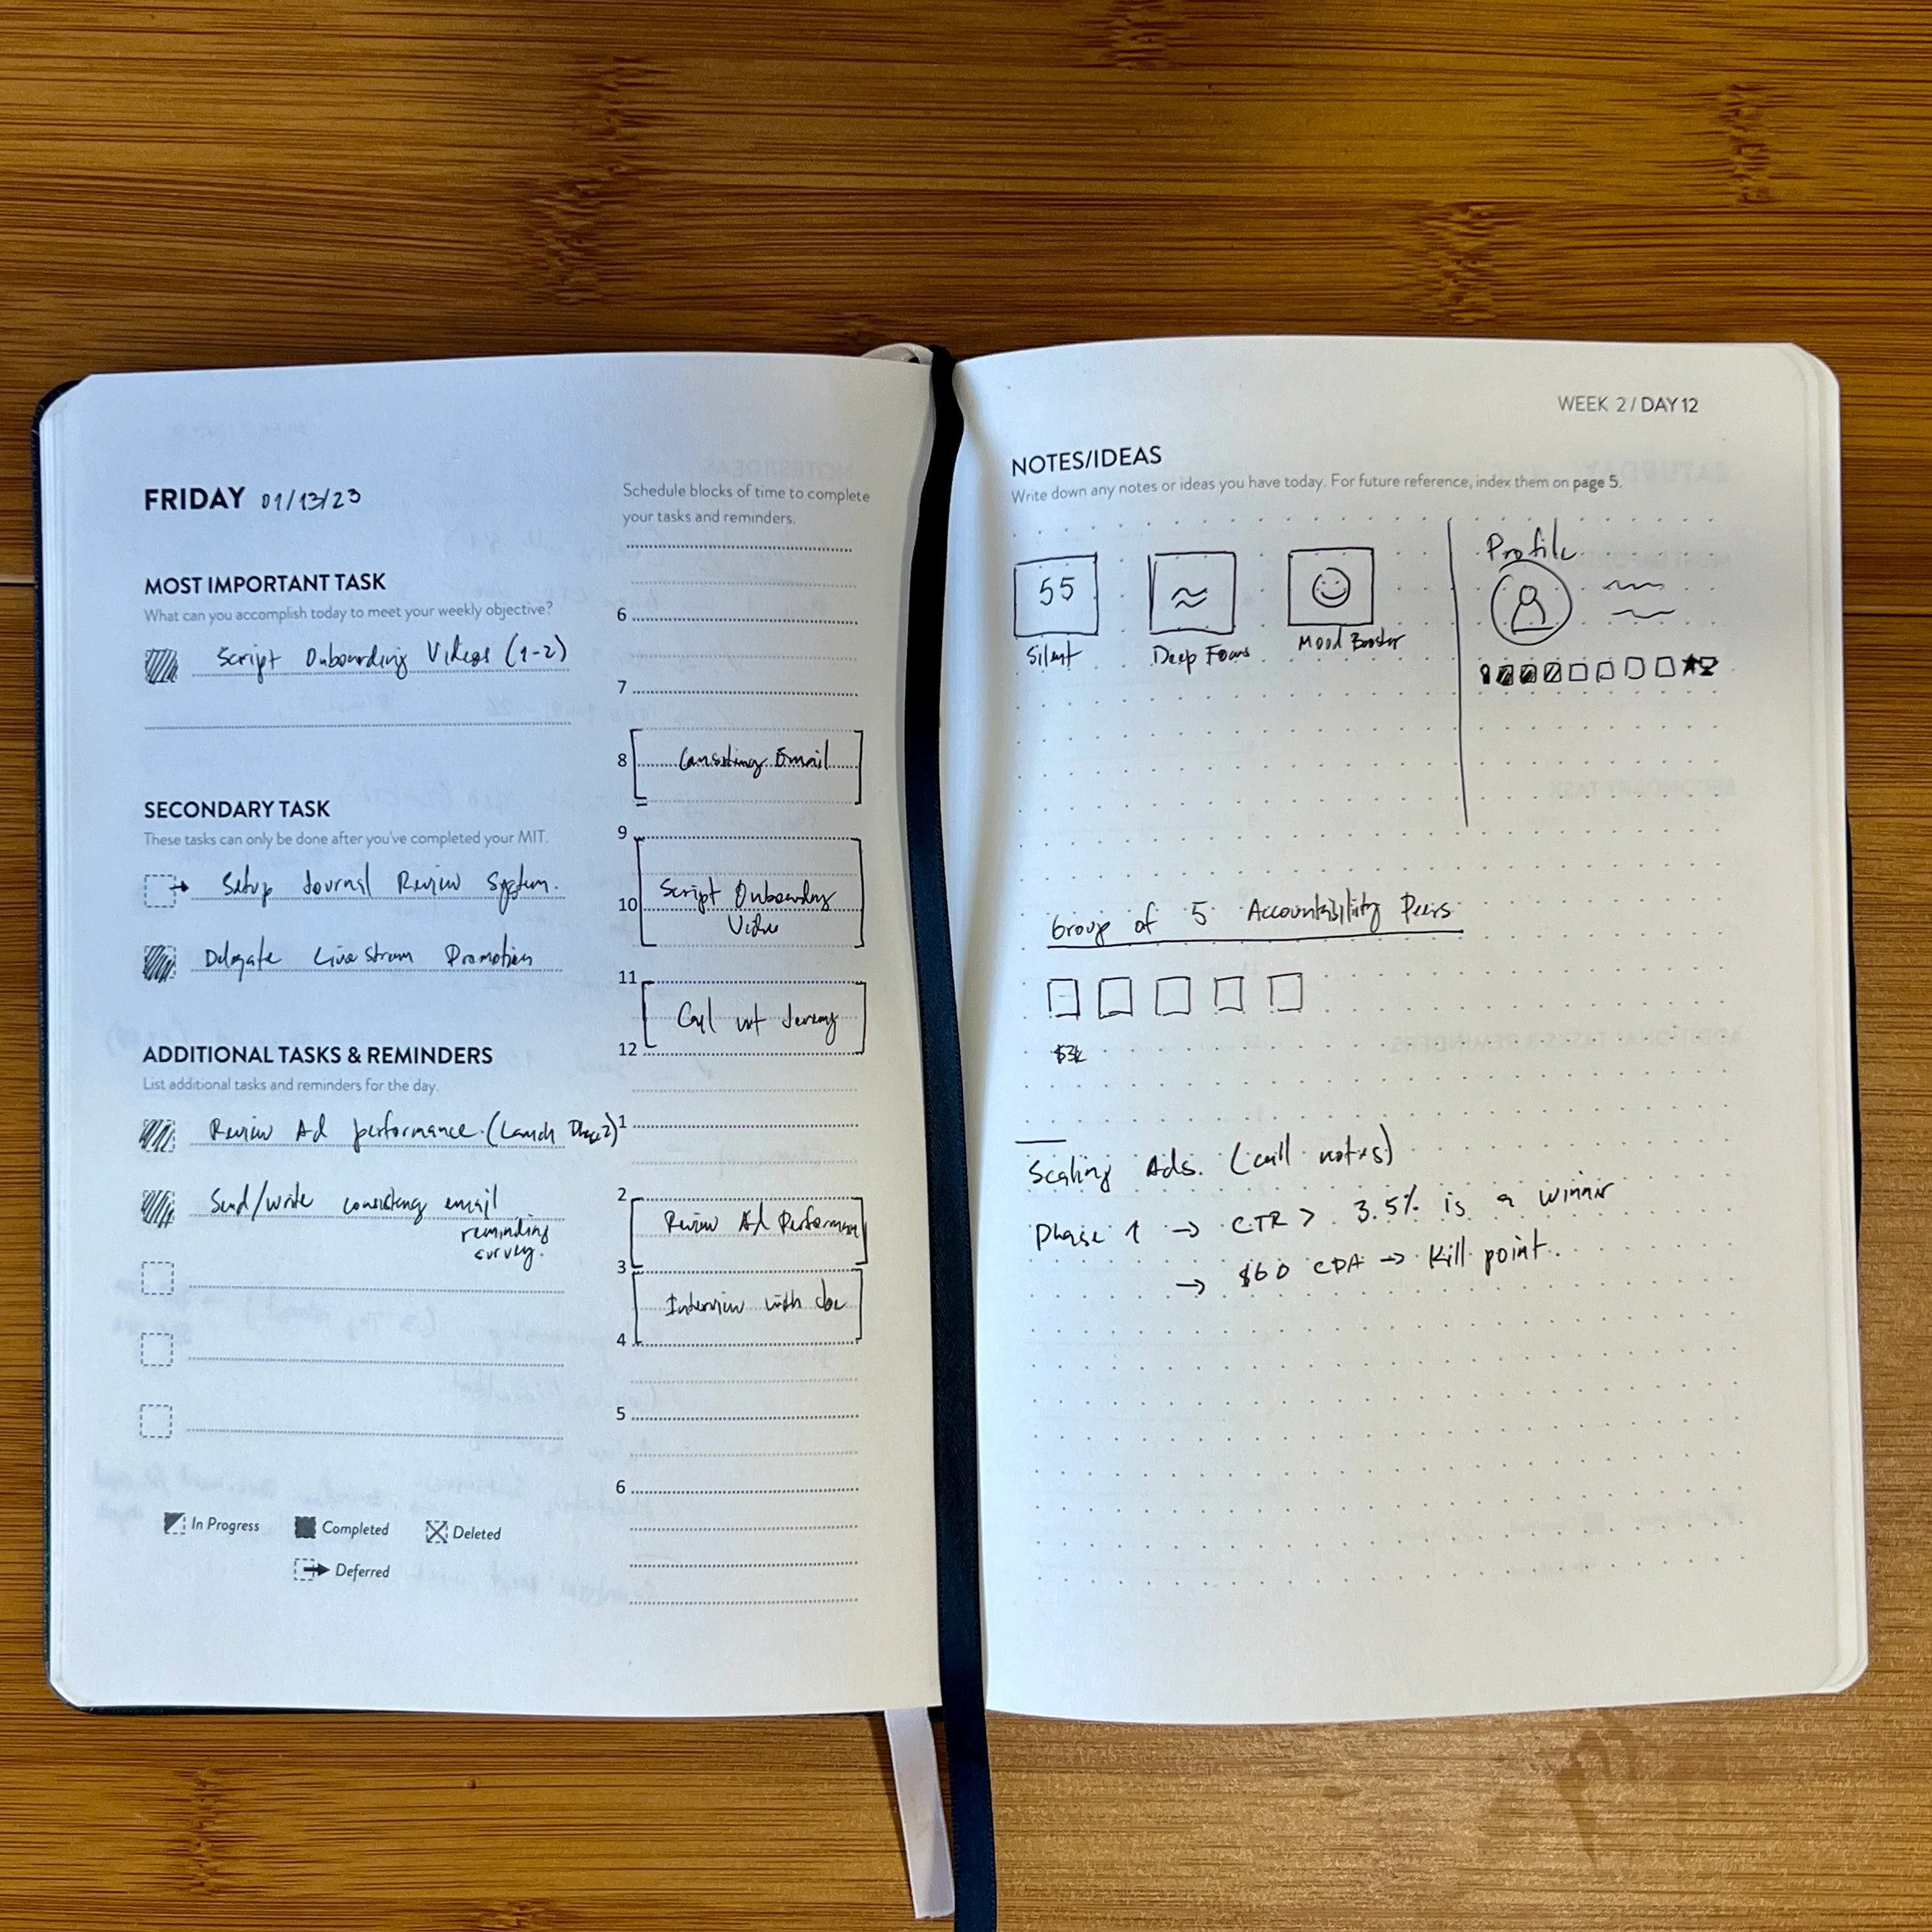 FRIDAY 01/13/23
MOST IMPORTANT TASK
What can you accomplish today to meet your weekly objective?
Script Onboarding Videos (1-2)
SECONDARY TASK
These tasks can only be done after you've completed your MIT.
Setup Journal Review System.
Delegate Live Stream Promotion
ADDITIONAL TASKS & REMINDERS
List additional tasks and reminders for the day.
Review Ad performance. (Launch Phase 2)
Send/write consisting email
reminding
survey.
In Progress
Completed
Deleted
Deferred
Schedule blocks of time to complete
your tasks and reminders.
6
7
8 Email
9
10 Script Onboarding
Video
11
Call w/ Jeremy
12
1
2
Review Ad Performan
3
Interview with Joe
4
5
6
WEEK 2 / DAY 12
NOTES/IDEAS
Write down any notes or ideas you have today. For future reference, index them on page 5.
55
Silent
Deep Focus
Mood Booster
Profile
Group of 5 Accountability Peers
$3k
Scaling Ads. (call notes)
Phase 1 → CTR > 3.5% is a winner
→ $60 CPA → Kill point.